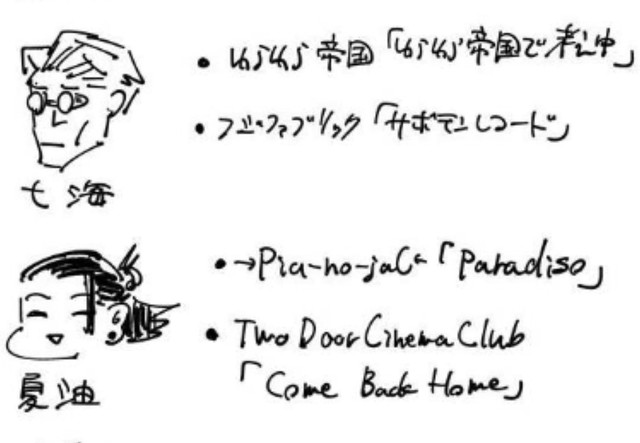 ・ゆらゆら帝国「ゆらゆら帝国で考え中」
・フジファブリック「サボテンレコード」
七海
・→Pia-no-jaC←「Paradiso」
・Two Door Cinema Club
「Come Back Home」
夏油